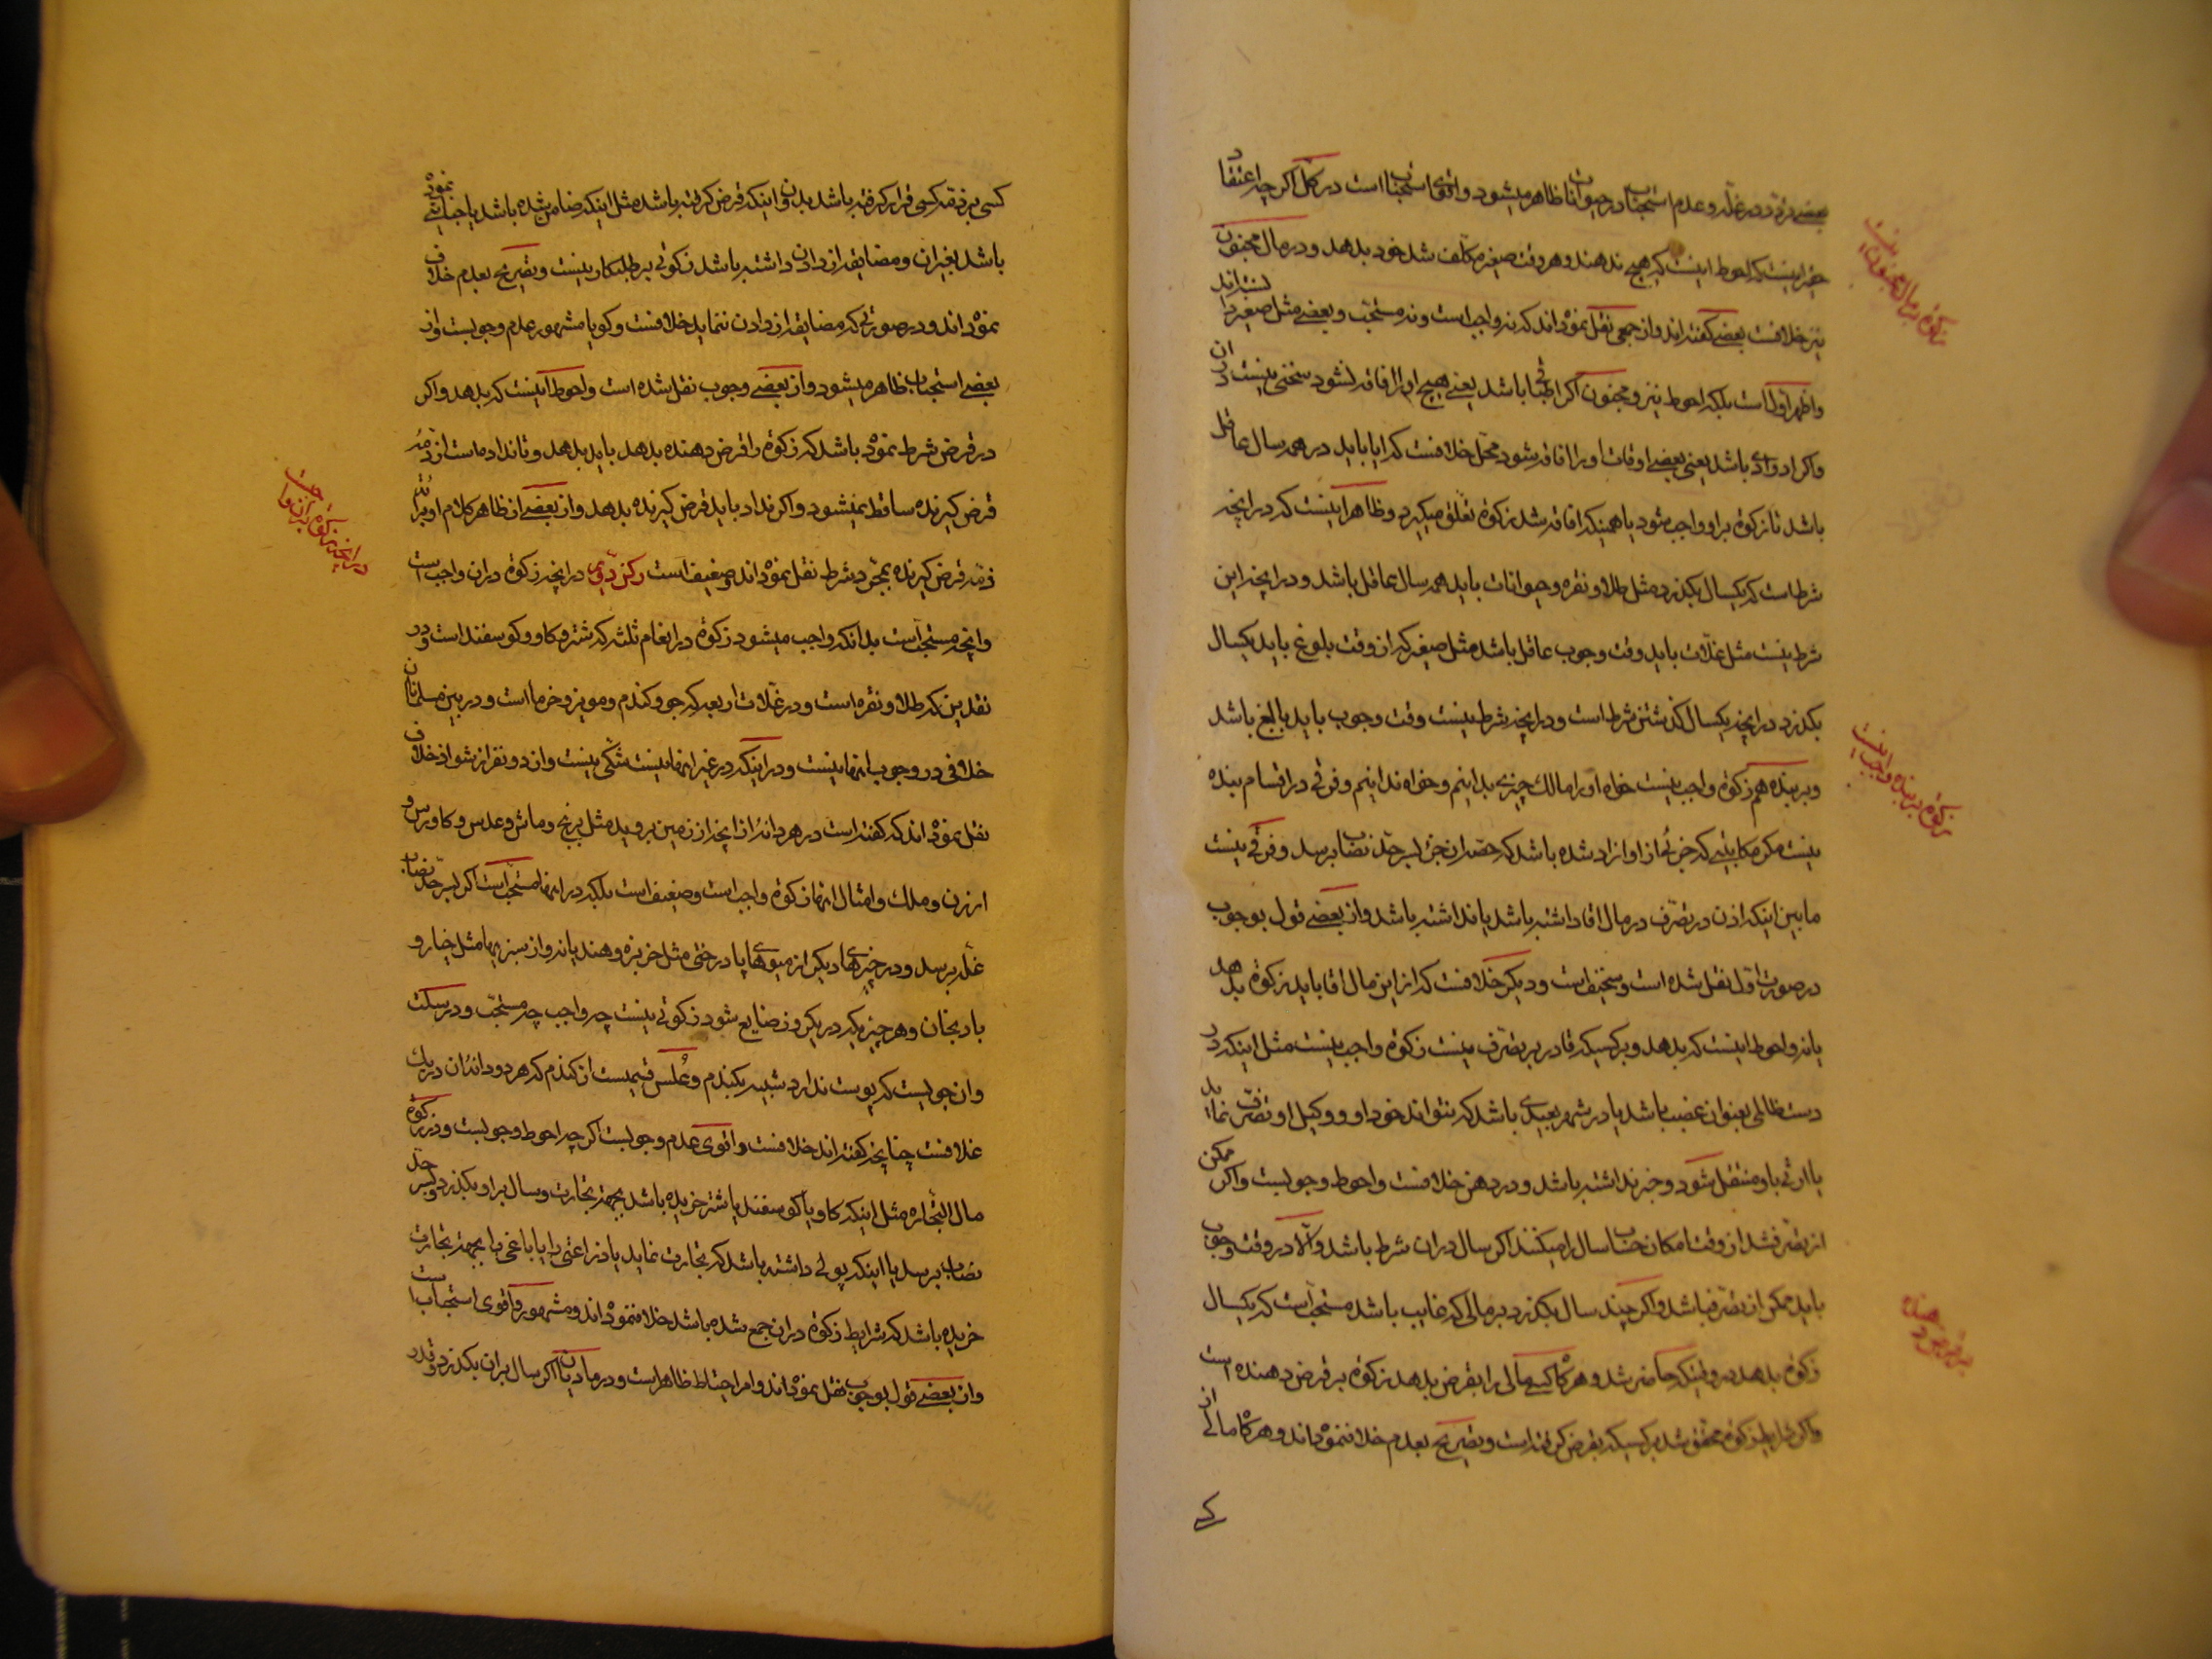 بعضی در غله و عدم استحباب در حیوانات ظاهر میشود و اقوی استحباب است در کل اکر چه اعتقاد
حقیر اینست که احوط اینست که هیچ ندهند و هر وقت صغیر مکلف شد خود بدهد و در مال مجنون
نیز خلافست بعضی کفته‌اند و از جمعی نقل نموده‌اند که نه واجب است و نه مستحب و بعضی مثل صغیر دانسته‌اند
و اظهر اول است بلکه احوط نیز و مجنون اکر اطباقی باشد یعنی هیچ او را افاقه نشود سخنی نیست در ان
و اکر ادواری باشد یعنی بعضی اوقات او را افاقه شود محل خلافست که ایا باید در همه سال عاقل
باشد تا زکوة بر او واجب شود یا همینکه افاقه شد زکوة تعلق میکیرد و ظاهر اینست که در انچه
شرط است که یکسال بکذرد مثل طلا و نقره و حیوانات باید همه سال عاقل باشد و در انچه این
شرط نیست مثل غلات باید وقت وجوب عاقل باشد مثل صغیر که از وقت بلوغ باید یکسال
بکذرد در انچه یکسال کذشتن شرط است و در انچه شرط نیست وقت وجوب باید بالغ باشد
و بر بنده هم زکوة واجب نیست خواه او را مالک چیزی بدانیم و خواه ندانیم و فرقی در اقسام بنده
نیست مکر مکاتبی که جزئی از او ازاد شده باشد که حصه ان جزء بحد نصاب برسد و فرقی نیست
مابین اینکه اذن در تصرف در مال اقا داشته باشد یا نداشته باشد و از بعضی قول بوجوب
در صورت اول نقل شده است و سخیف است و دیکر خلافست که از این مال اقا باید زکوة بدهد
یا نه و احوط اینست که بدهد و بر کسیکه قادر بر تصرف نیست زکوة واجب نیست مثل اینکه در
دست ظالمی بعنوان غصب باشد یا در شهر بعیدی باشد که نتواند خود او و وکیل او تصرف نماید
یا ارثی باو منتقل شود و خبر نداشته باشد و در رهن خلافست و احوط وجوبست و اکر ممکن
از تصرف شد از وقت امکان حساب سال را میکنند اکر سال در ان شرط باشد و الا در وقت وجوب
باید ممکن از تصرف باشد و اکر چند سال بکذرد بر مالی که غایب باشد مستحب است که یکسال
زکوة بدهد در وقتیکه حاضر شد و هرکاه کسی مالی را بقرض بدهد زکوة بر قرض دهنده است
و اکر شرایط زکوة محقق شد بر کسیکه بقرض کرفته است و تصریح بعدم خلاف نموده‌اند و هرکاه مالی از
زکوة بر مال مجنون نیست
زکوة بر بنده واجب نیست
بر قرض دهنده
کسی بر ذمه کسی قرار کرفته باشد بدون اینکه قرض کرفته باشد مثل اینکه ضامن شده باشد یا جنایتی نموده
باشد بغیر ان و مضایقه از دادن داشته باشد زکوتی بر طلبکار نیست و تصریح بعدم خلاف
نموده‌اند و در صورتیکه مضایقه از دادن ننماید خلافست و کویا مشهور عدم وجوبست و از
بعضی استحباب ظاهر میشود و از بعضی وجوب نقل شده است و احوط اینست که بدهد و اکر
در قرض شرط نموده باشد که زکوة را قرض دهنده بدهد باید بدهد و تا نداده است از ذمه
قرض کیرنده ساقط نمیشود و اکر نداد باید قرض کیرنده بدهد و از بعضی از ظاهر کلام او برائت
ذمه قرض کیرنده بمجرد شرط نقل نموده‌اند و ضعیف است رکن دویم در انچه زکوة در ان واجب است
و انچه مستحب است بدانکه واجب میشود زکوة در انعام ثلثه که شتر و کاو و کوسفند است و در
نقدین که طلا و نقره است و در غلات اربعه که جو و کندم و مویز و خرما است و در بین مسلمانان
خلافی در وجوب اینها نیست و در اینکه در غیر اینها نیست شکی نیست و از دو نفر از شواذ خلاف
نقل نموده‌اند که کفته است در هر دانه از انچه از زمین بروید مثل برنج و ماش و عدس و کاورس و
ارزن و ملک و امثال اینها زکوة واجب است و ضعیف است بلکه در اینها مستحب است اکر بحد نصاب
غله برسد و در چیزهای دیکر از میوهای پا درختی مثل خربزه و هندیانه و از سبزیها مثل خیار و
بادنجان و هر چیزیکه در یکروز ضایع شود زکوتی نیست چه واجب چه مستحب و در سلت
و ان جویست که پوست ندارد شبیه بکندم و علس قسمیست از کندم که هر دو دانه ان در یک
غلافست چنانچه کفته‌اند خلافست و اقوی عدم وجوبست اکر چه احوط وجوبست و در زکوة
مال التجاره مثل اینکه کاو یا کوسفند یا شتر خریده باشد بجهة تجارت و سال بر او بکذرد و بحد
نصاب برسد یا اینکه پولی داشته باشد که تجارت نماید یا زراعتی را یا باغی را بجهة تجارت
خریده باشد که شرایط زکوة در ان جمع شده باشد خلاف نموده‌اند و مشهور و اقوی استحباب است
و از بعضی قول بوجوب نقل نموده‌اند و امر احتیاط ظاهر است و در مادیان اکر سال بر ان بکذرد و قدر
در انچه زکوة بر ان واجب